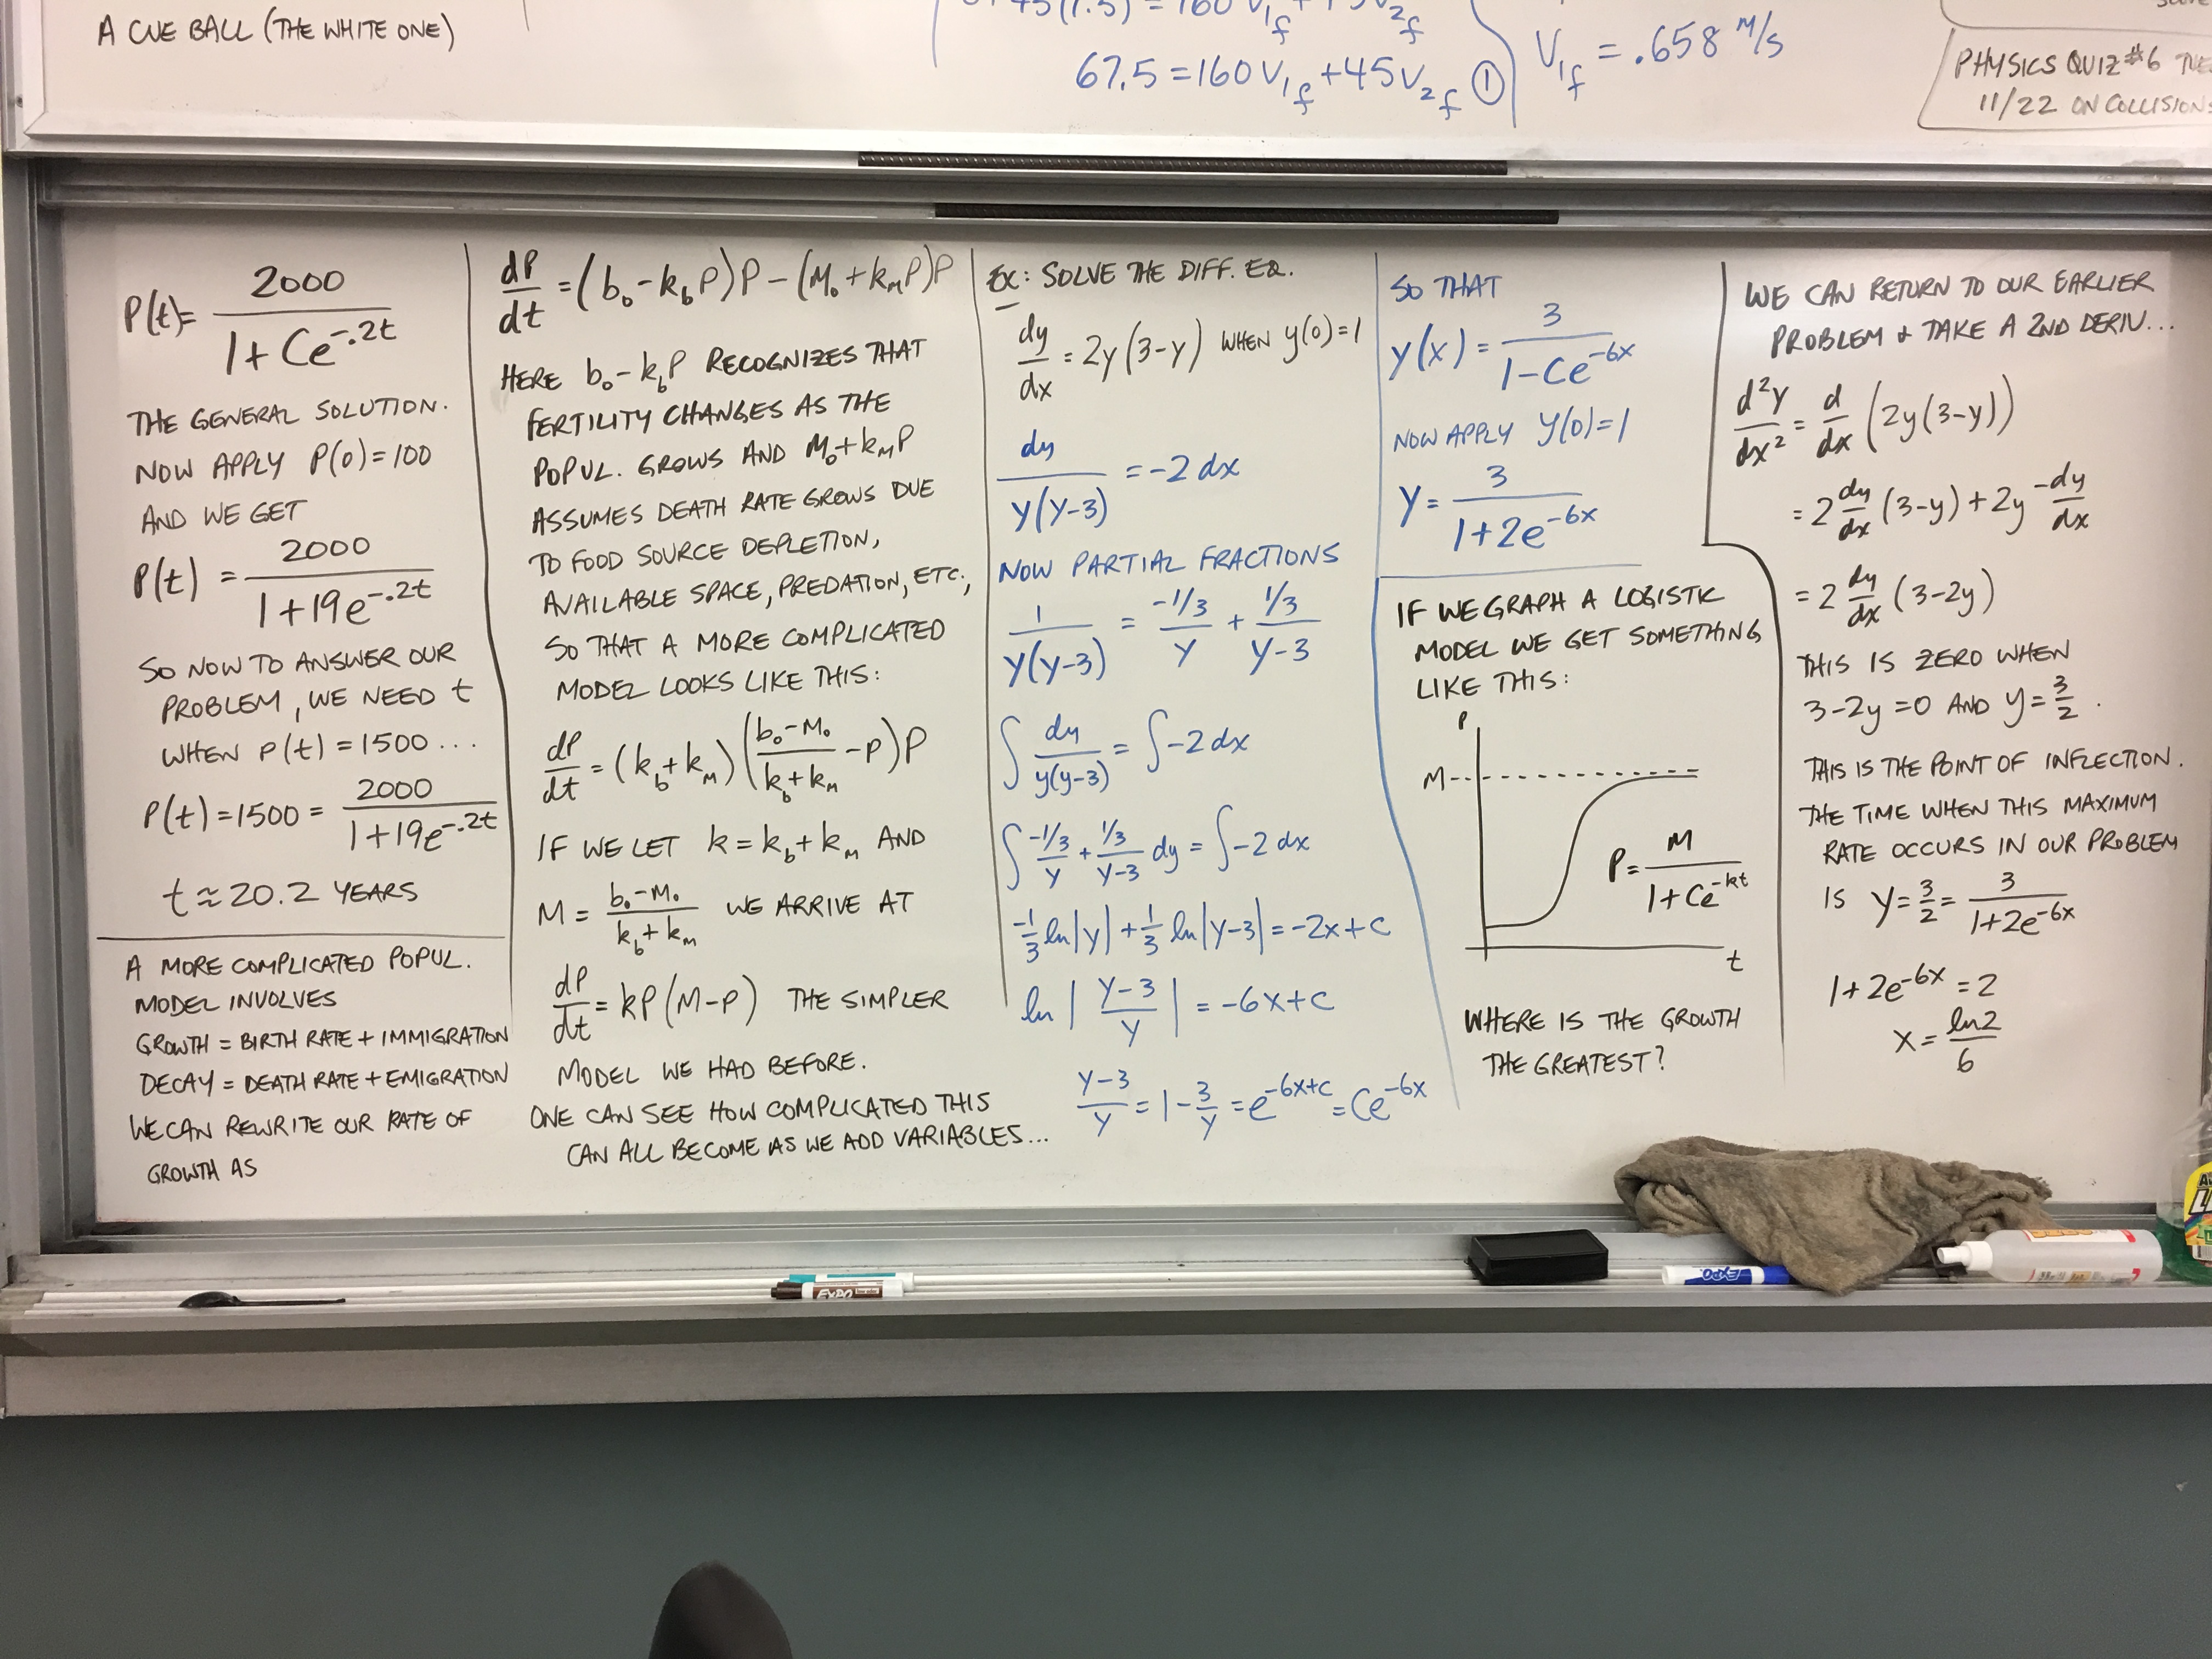 A CUE BALL (THE WHITE ONE)
67.5 = 160 V₁f + 45 V₂f ①
V₁f = .658 M/S
PHYSICS QUIZ #6
11/22 ON COLLISIONS
P(t) = 2000 / (1 + Ce^-.2t)
THE GENERAL SOLUTION.
NOW APPLY P(0) = 100
AND WE GET
P(t) = 2000 / (1 + 19e^-.2t)
SO NOW TO ANSWER OUR
PROBLEM, WE NEED t
WHEN P(t) = 1500 ...
P(t) = 1500 = 2000 / (1 + 19e^-.2t)
t ≈ 20.2 YEARS
A MORE COMPLICATED POPUL.
MODEL INVOLVES
GROWTH = BIRTH RATE + IMMIGRATION
DECAY = DEATH RATE + EMIGRATION
WE CAN REWRITE OUR RATE OF
GROWTH AS
dP/dt = (b₀ - k_b P)P - (M₀ + k_M P)P
HERE b₀ - k_b P RECOGNIZES THAT
FERTILITY CHANGES AS THE
POPUL. GROWS AND M₀ + k_M P
ASSUMES DEATH RATE GROWS DUE
TO FOOD SOURCE DEPLETION,
AVAILABLE SPACE, PREDATION, ETC.,
SO THAT A MORE COMPLICATED
MODEL LOOKS LIKE THIS:
dP/dt = (k_b + k_M)((b₀ - M₀)/(k_b + k_M) - P)P
IF WE LET k = k_b + k_M AND
M = (b₀ - M₀)/(k_b + k_M) WE ARRIVE AT
dP/dt = kP(M - P) THE SIMPLER
MODEL WE HAD BEFORE.
ONE CAN SEE HOW COMPLICATED THIS
CAN ALL BECOME AS WE ADD VARIABLES...
EX: SOLVE THE DIFF. EQ.
dy/dx = 2y(3-y) WHEN y(0) = 1
dy / (y(y-3)) = -2 dx
NOW PARTIAL FRACTIONS
1 / (y(y-3)) = (-1/3)/y + (1/3)/(y-3)
∫ dy / (y(y-3)) = ∫ -2 dx
∫ (-1/3)/y + (1/3)/(y-3) dy = ∫ -2 dx
-1/3 ln|y| + 1/3 ln|y-3| = -2x + c
ln |(y-3)/y| = -6x + c
(y-3)/y = 1 - 3/y = e^(-6x+c) = Ce^-6x
SO THAT
y(x) = 3 / (1 - Ce^-6x)
NOW APPLY y(0) = 1
y = 3 / (1 + 2e^-6x)
IF WE GRAPH A LOGISTIC
MODEL WE GET SOMETHING
LIKE THIS:
P
M
P = M / (1 + Ce^-kt)
t
WHERE IS THE GROWTH
THE GREATEST?
WE CAN RETURN TO OUR EARLIER
PROBLEM & TAKE A 2ND DERIV...
d²y/dx² = d/dx (2y(3-y))
= 2 dy/dx (3-y) + 2y -dy/dx
= 2 dy/dx (3-2y)
THIS IS ZERO WHEN
3-2y = 0 AND y = 3/2.
THIS IS THE POINT OF INFLECTION.
THE TIME WHEN THIS MAXIMUM
RATE OCCURS IN OUR PROBLEM
IS y = 3/2 = 3 / (1 + 2e^-6x)
1 + 2e^-6x = 2
x = ln2 / 6
EXPO
EXPO